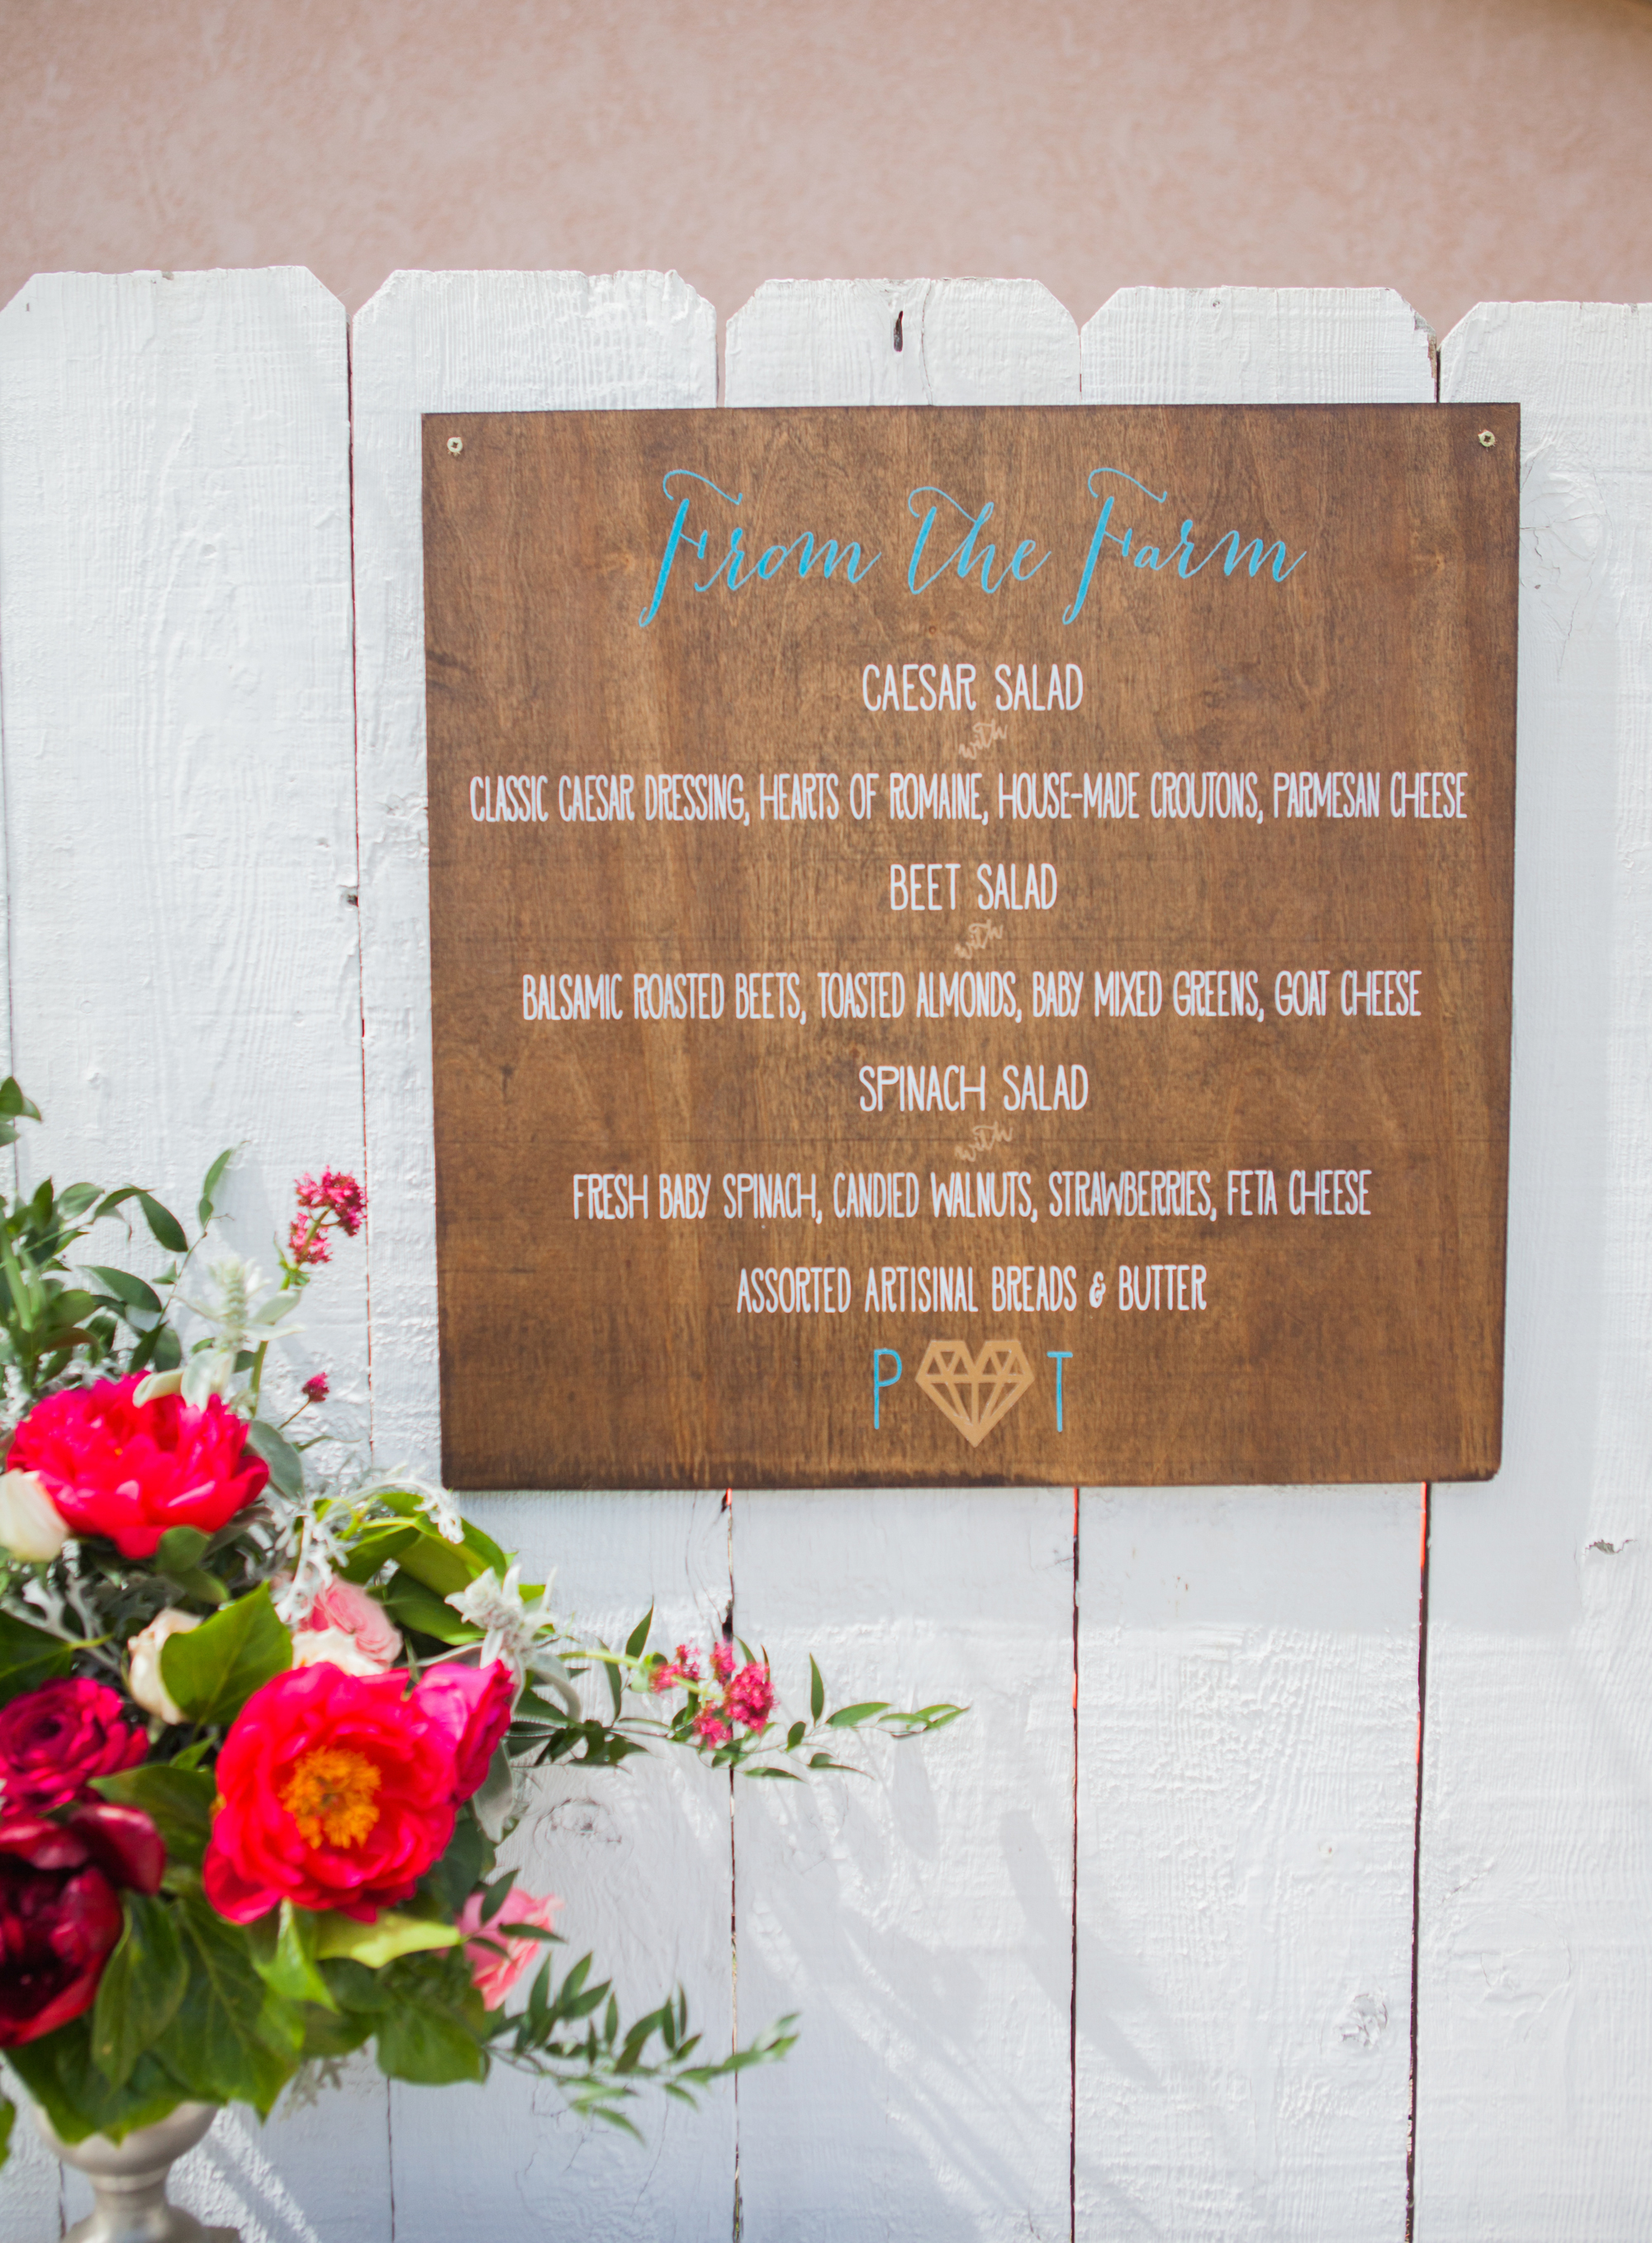 From the Farm
CAESAR SALAD
with
CLASSIC CAESAR DRESSING, HEARTS OF ROMAINE, HOUSE-MADE CROUTONS, PARMESAN CHEESE
BEET SALAD
with
BALSAMIC ROASTED BEETS, TOASTED ALMONDS, BABY MIXED GREENS, GOAT CHEESE
SPINACH SALAD
with
FRESH BABY SPINACH, CANDIED WALNUTS, STRAWBERRIES, FETA CHEESE
ASSORTED ARTISINAL BREADS & BUTTER
P T